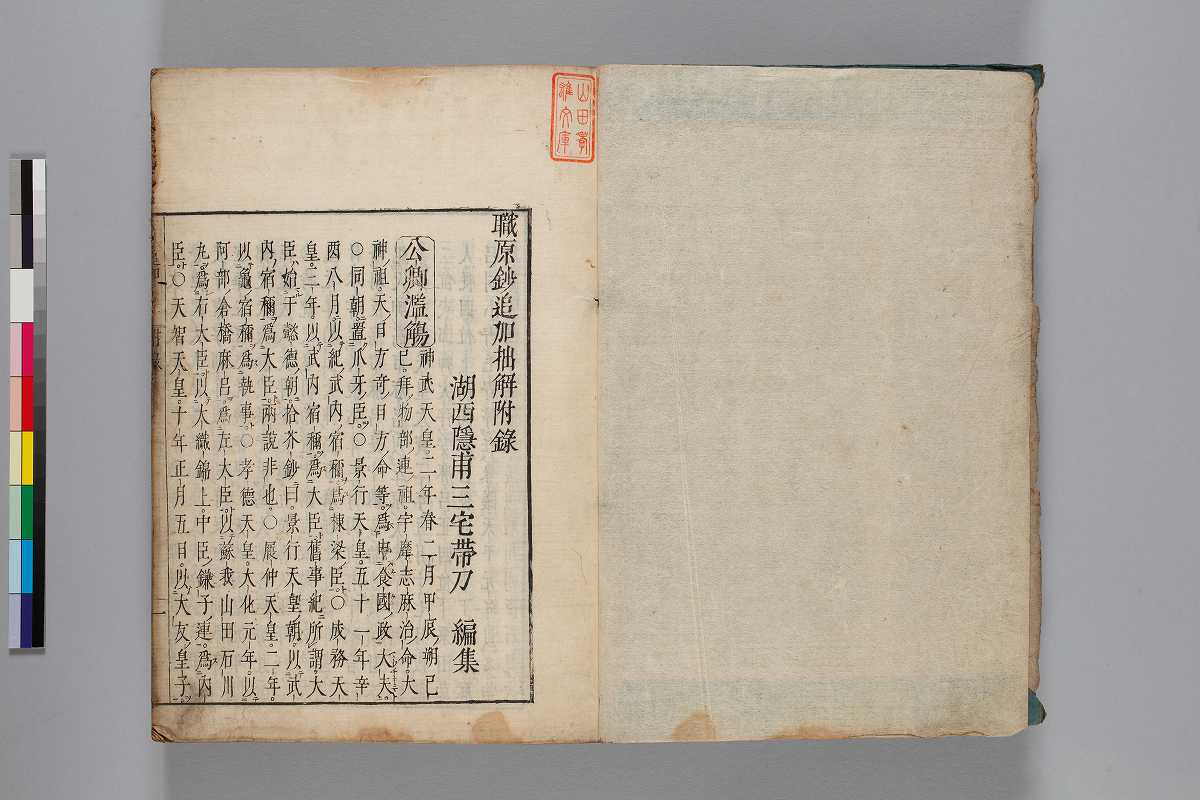 職原鈔追加拙解附錄
湖西隱甫三宅帶刀 編集
公卿濫觴
神武天皇二年春二月甲辰朔己
巳拜物部連祖宇摩志麻治命大
神祖天日方奇日方命等為申食國政大夫
○同朝置爪牙臣○景行天皇五十一年辛
酉八月以紀武内宿禰為棟梁臣○成務天
皇三年以武内宿禰為大臣舊事紀所謂大
臣始于懿德朝拾芥鈔曰景行天皇朝以武
内宿禰為大臣兩說非也○履仲天皇二年
以宿禰為執事○孝德天皇大化元年以
阿部倉橋麻呂為左大臣以蘇我山田石川
丸為右大臣以大織錦上中臣鎌子連為内
臣○天智天皇十年正月五日以大友皇子
附錄 一
山田貴
雄文庫